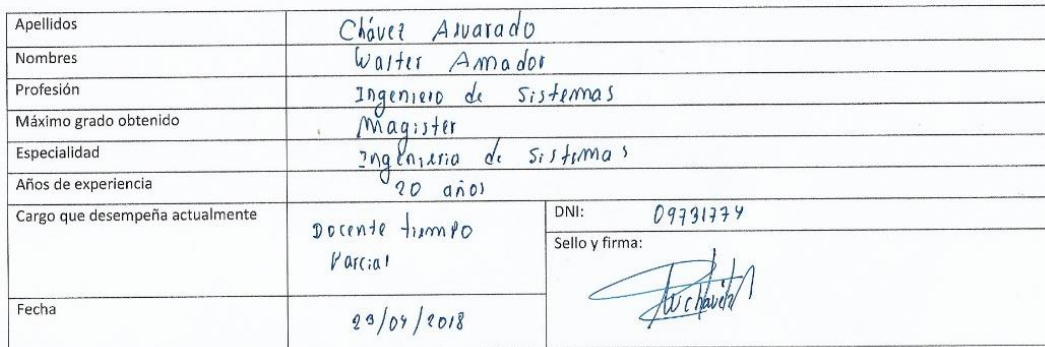 Apellidos Chávez Alvarado
Nombres Walter Amador
Profesión Ingeniero de Sistemas
Máximo grado obtenido Magister
Especialidad Ingenieria de Sistemas
Años de experiencia 20 años
Cargo que desempeña actualmente Docente tiempo
Parcial
DNI: 09731774
Sello y firma:
Fecha 23/04/2018